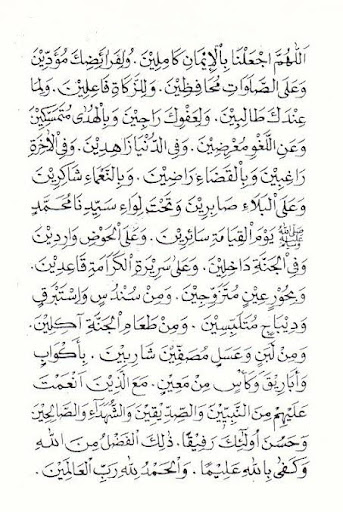 اَللّٰهُمَّ اجْعَلْنَا بِالْإِيْمَانِ كَامِلِيْنَ . وَلِفَرَائِضِكَ مُؤَدِّيْنَ
وَعَلَى الصَّلَوَاتِ مُحَافِظِيْنَ . وَلِلزَّكَاةِ فَاعِلِيْنَ . وَلِمَا
عِنْدَكَ طَالِبِيْنَ . وَلِعَفْوِكَ رَاجِيْنَ وَبِالْهُدٰى مُتَمَسِّكِيْنَ
وَعَنِ اللَّغْوِ مُعْرِضِيْنَ . وَفِى الدُّنْيَا زَاهِدِيْنَ . وَفِى الْاٰخِرَةِ
رَاغِبِيْنَ وَبِالْقَضَاءِ رَاضِيْنَ . وَبِالنَّعْمَاءِ شَاكِرِيْنَ
وَعَلَى الْبَلَاءِ صَابِرِيْنَ وَتَحْتَ لِوَاءِ سَيِّدِنَا مُحَمَّدٍ
ﷺ يَوْمَ الْقِيَامَةِ سَائِرِيْنَ . وَعَلَى الْحَوْضِ وَارِدِيْنَ
وَفِى الْجَنَّةِ دَاخِلِيْنَ . وَعَلٰى سَرِيْرَةِ الْكَرَامَةِ قَاعِدِيْنَ .
وَبِحُوْرٍ عِيْنٍ مُتَزَوِّجِيْنَ . وَمِنْ سُنْدُسٍ وَاِسْتَبْرَقٍ
وَدِيْبَاجٍ مُتَلَبِّسِيْنَ . وَمِنْ طَعَامِ الْجَنَّةِ اٰكِلِيْنَ .
وَمِنْ لَبَنٍ وَعَسَلٍ مُصَفَّيْنِ شَارِبِيْنَ . بِأَكْوَابٍ
وَأَبَارِيْقَ وَكَأْسٍ مِنْ مَعِيْنٍ . مَعَ الَّذِيْنَ اَنْعَمْتَ
عَلَيْهِمْ مِنَ النَّبِيِّيْنَ وَالصِّدِّيْقِيْنَ وَالشُّهَدَاءِ وَالصَّالِحِيْنَ
وَحَسُنَ اُولٰئِكَ رَفِيْقًا . ذٰلِكَ الْفَضْلُ مِنَ اللّٰهِ
وَكَفٰى بِاللّٰهِ عَلِيْمًا . وَالْحَمْدُ لِلّٰهِ رَبِّ الْعَالَمِيْنَ .